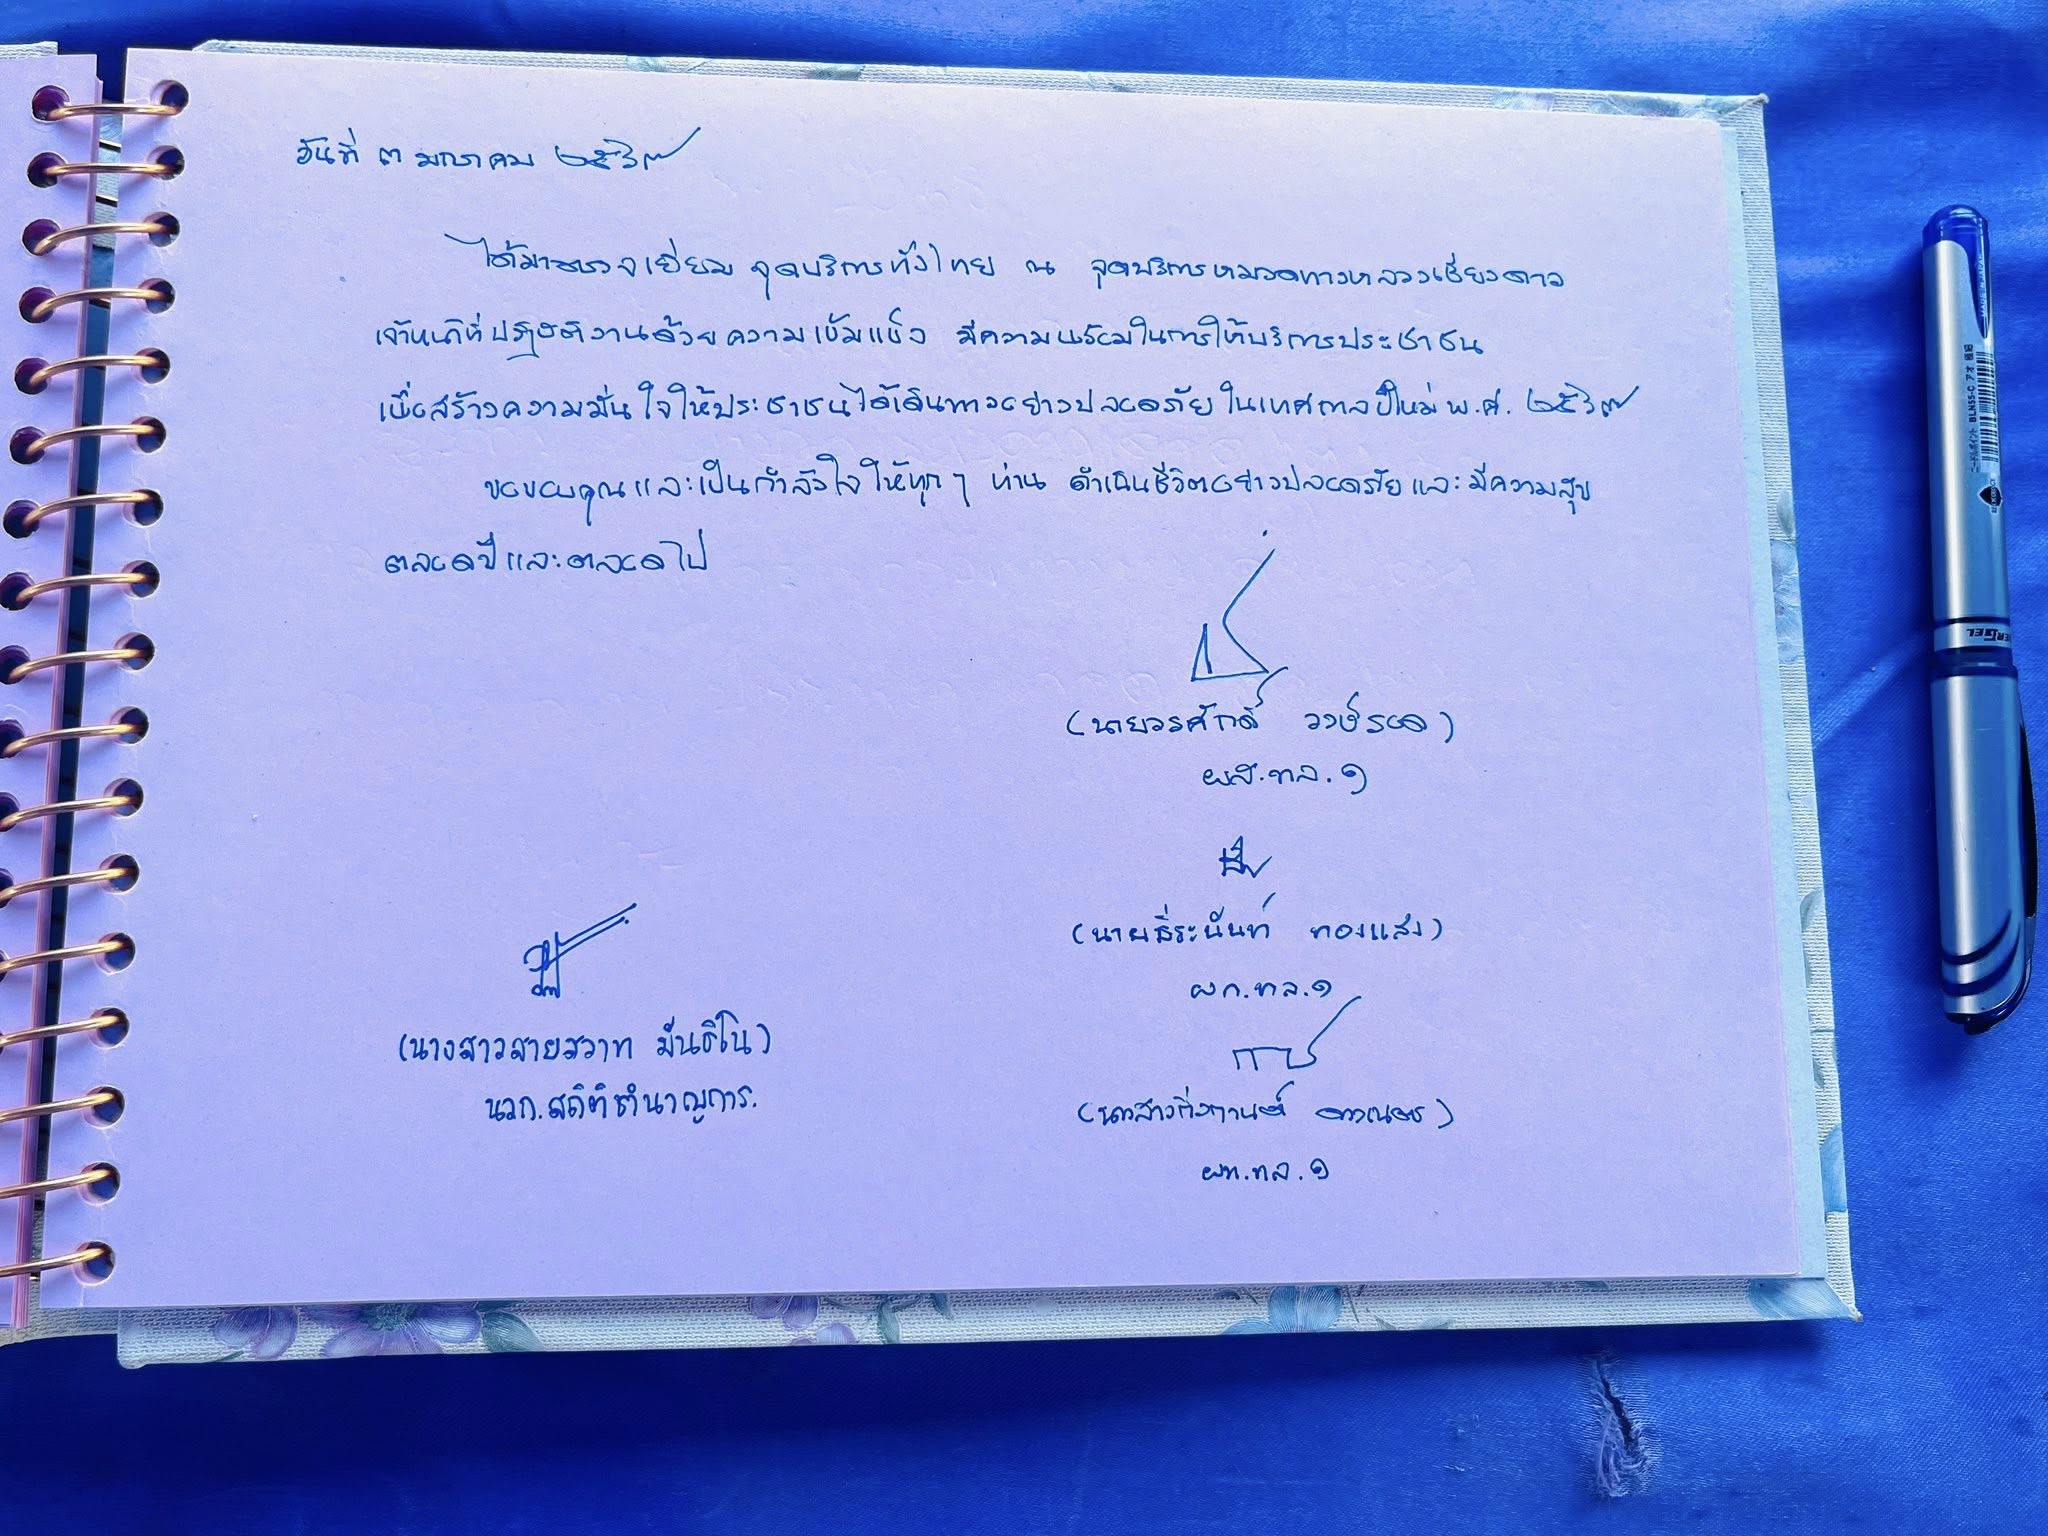 วันที่ ๓ มกราคม ๒๕๖๗
ได้มาตรวจเยี่ยม จุดบริการทั่วไทย ณ จุดบริการหมวดทางหลวงเชียงดาว
เจ้าหน้าที่ปฏิบัติงานด้วยความเข้มแข็ง มีความพร้อมในการให้บริการประชาชน
เพื่อสร้างความมั่นใจให้ประชาชนได้เดินทางอย่างปลอดภัยในเทศกาลปีใหม่ พ.ศ. ๒๕๖๗
ขอขอบคุณและเป็นกำลังใจให้ทุกๆ ท่าน ดำเนินชีวิตอย่างปลอดภัยและมีความสุข
ตลอดปีและตลอดไป
(นายวรศักดิ์ วงษ์รอด)
ผส.ทล.๑
(นายธีระนันท์ ทองแสง)
ผก.ทล.๑
(นางสาวสายสวาท มันธิโน)
นวก.สถิติชำนาญการ.
(นางสาวกิ่งกานต์
ผท.ทล.๑
PENTEL
BLN55-C
MADE IN JAPAN